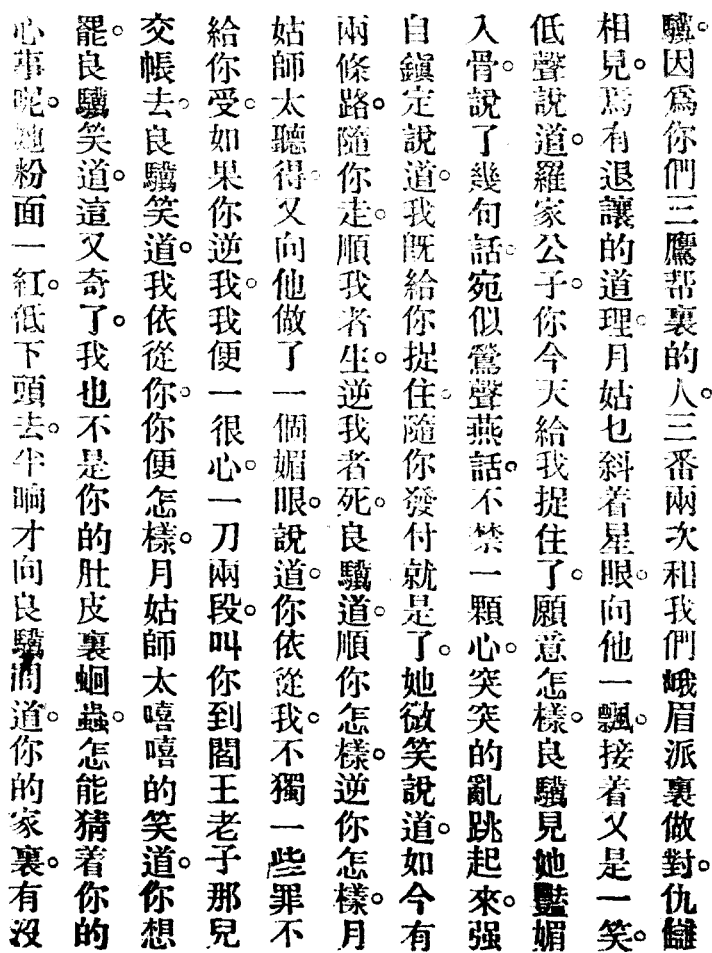 驥。因爲你們三鷹帮裏的人。三番兩次和我們峨眉派裏做對。仇讎
相見。焉有退讓的道理。月姑乜斜着星眼。向他一飄。接着又是一笑。
低聲說道。羅家公子。你今天給我捉住了。願意怎樣。良驥見她豔媚
入骨。說了幾句話。宛似鶯聲燕話。不禁一顆心。突突的亂跳起來。强
自鎭定說道。我旣給你捉住。隨你發付就是了。她微笑說道。如今有
兩條路。隨你走。順我者生。逆我者死。良驥道。順你怎樣。逆你怎樣。月
姑師太聽得。又向他做了一個媚眼。說道。你依從我。不獨一些罪不
給你受。如果你逆我。我便一很心。一刀兩段。叫你到閻王老子那兒
交帳去。良驥笑道。我依從你。你便怎樣。月姑師太嘻嘻的笑道。你想
罷。良驥笑道。這又奇了。我也不是你的肚皮裏蛔蟲。怎能猜着你的
心事呢。她粉面一紅。低下頭去。半晌才向良驥問道。你的家裏。有沒